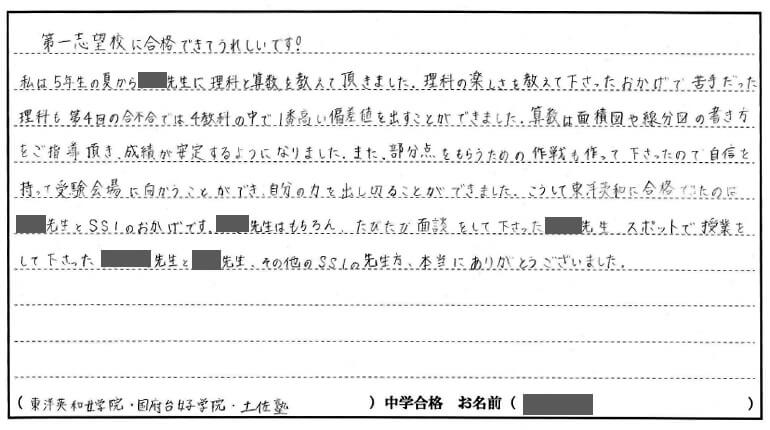 第一志望校に合格できてうれしいです!
私は5年生の夏から先生に理科と算数を教えて頂きました。理科の楽しさを教えて下さったおかげで苦手だった
理科も第4回の合不合では4教科の中で1番高い偏差値を出すことができました。算数は面積図や線分図の書き方
をご指導頂き、成績が安定するようになりました。また、部分点をもらうための作戦も作って下さったので自信を
持って受験会場に向かうことができ、自分の力を出し切ることができました。こうして東洋英和に合格できたのは
先生とSS1のおかげです。先生はもちろん、たびたび面談をして下さった先生 スポットで授業を
して下さった先生と先生、その他のSS1の先生方、本当にありがとうございました。
(東洋英和女学院・国府台女子学院・土佐塾)中学合格 お名前()